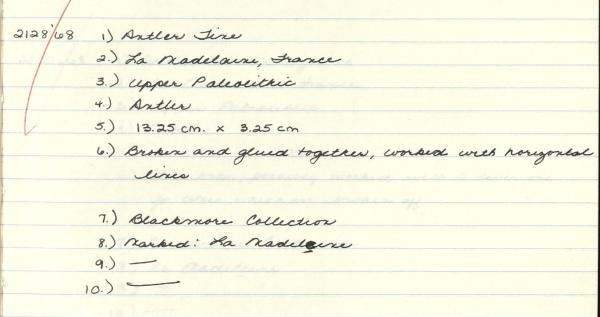 2128'68 1) Antler Tine
2.) La Madelaine, France
3.) Upper Paleolithic
4.) Antler
5.) 13.25 cm. x 3.25 cm
6.) Broken and glued together, worked with horizontal
lines
7.) Blackmore Collection
8.) Marked: La Madeleine
9.) —
10.) —